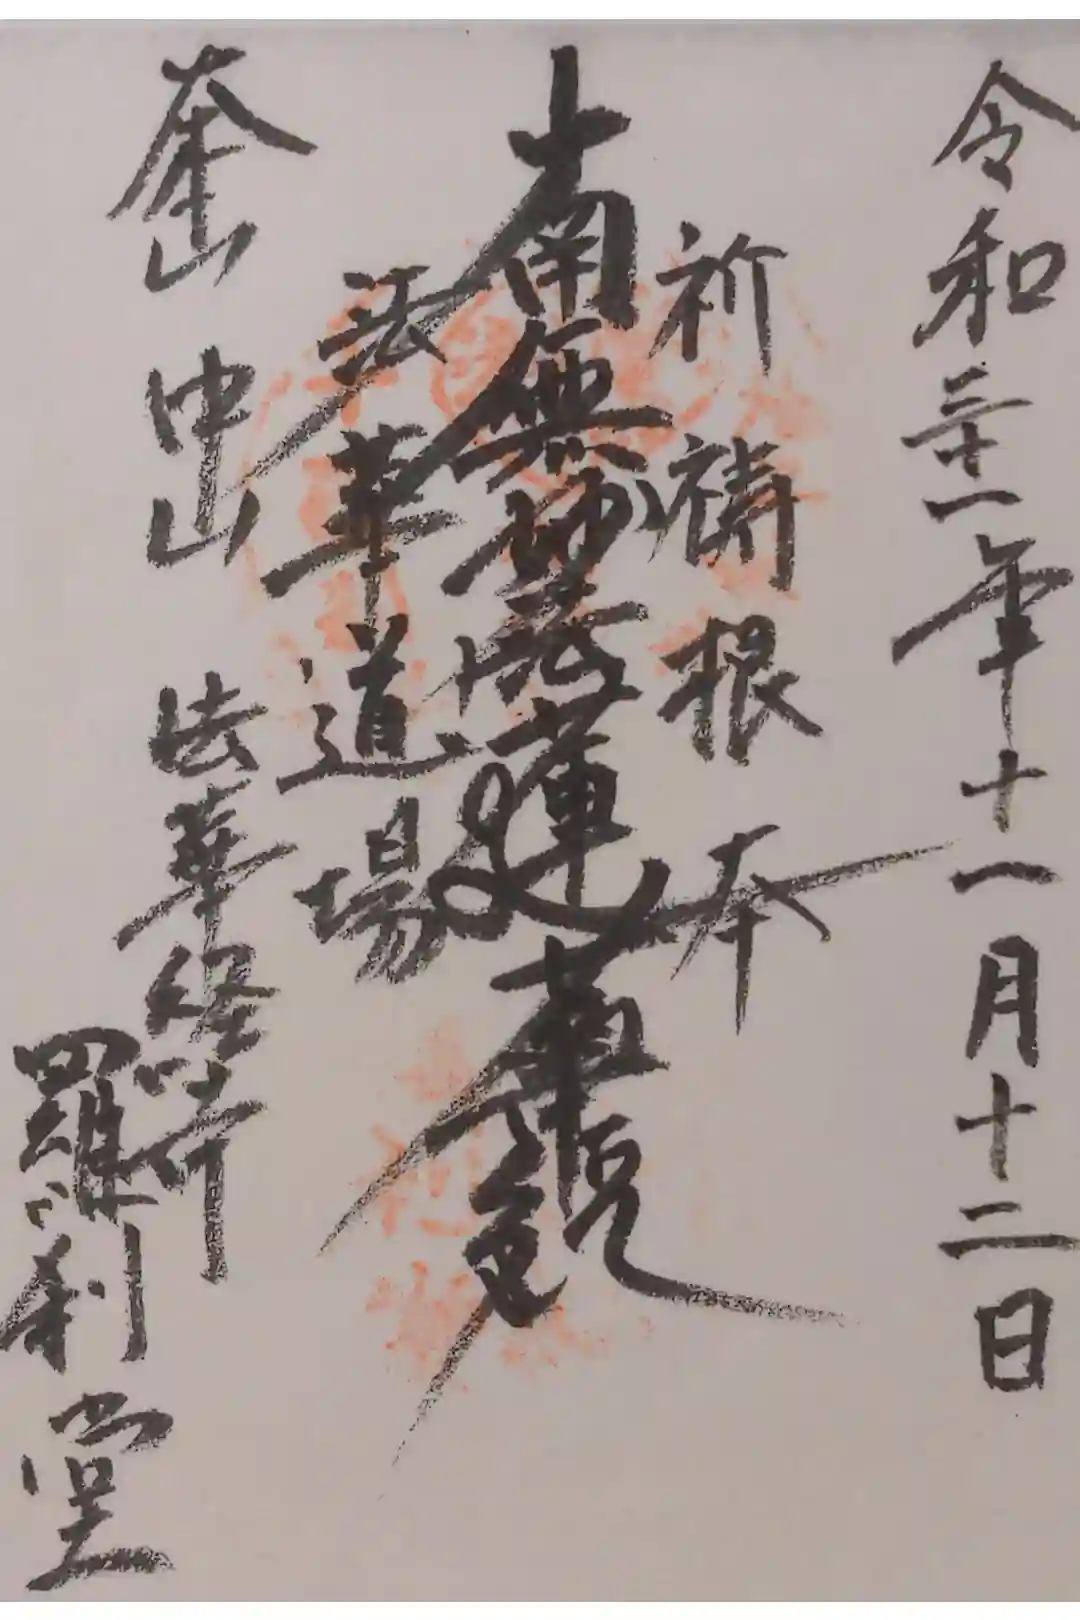 令和三十一年十一月十二日
祈祷根本
南無妙法蓮華経
法華道場
大本山 中山 法華経寺
羅刹堂